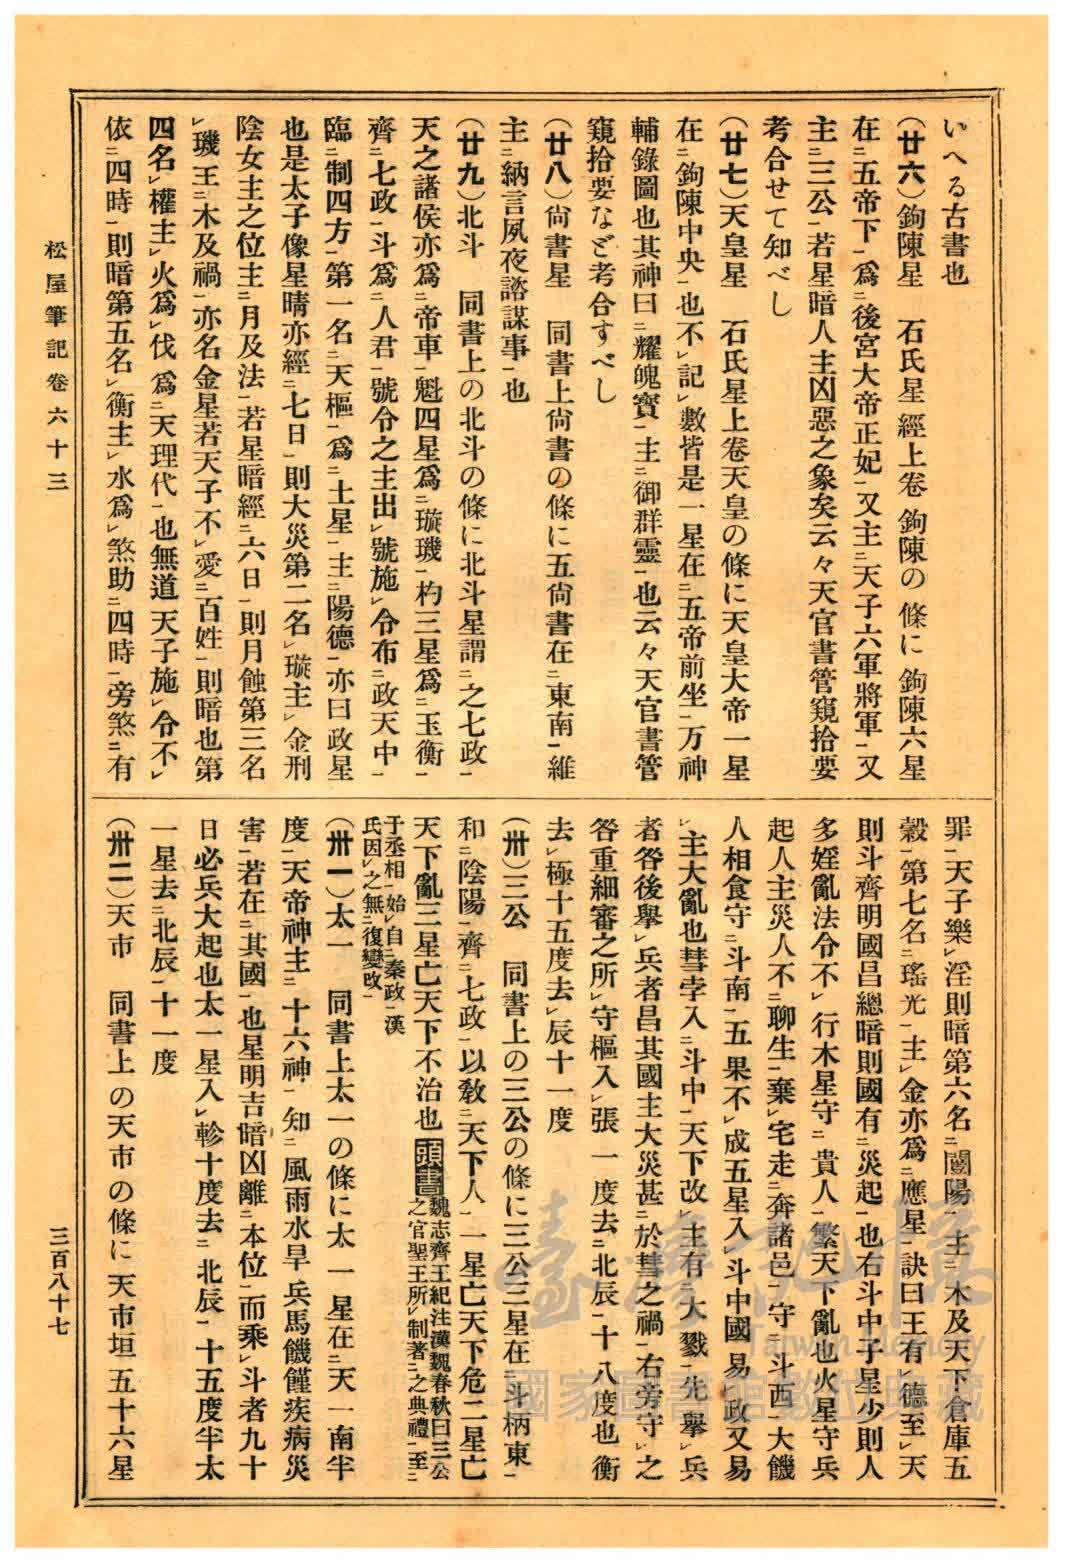 いへる古書也
(廿六)鉤陳星　石氏星經上卷鉤陳の條に鉤陳六星
在㆓五帝下㆒爲㆓後宮大帝正妃㆒又主㆓天子六軍將軍㆒又
主㆓三公㆒若星暗人主凶惡之象矣云々天官書管窺拾要
考合せて知べし
(廿七)天皇星　石氏星上卷天皇の條に天皇大帝一星
在㆓鉤陳中央㆒也不㆑記㆑數皆是一星在㆓五帝前坐㆒万神
輔錄圖也其神曰㆓耀魄寳㆒主㆓御群靈㆒也云々天官書管
窺拾要など考合すべし
(廿八)尙書星　同書上尙書の條に五尙書在㆓東南㆒維
主㆓納言夙夜諮謀事㆒也
(廿九)北斗　同書上の北斗の條に北斗星謂㆓之七政㆒
天之諸侯亦爲㆓帝車㆒魁四星爲㆓璇璣㆒杓三星爲㆓玉衡㆒
齊㆓七政㆒斗爲㆓人君㆒號令之主出㆑號施㆑令布㆓政天中㆒
臨㆓制四方㆒第一名㆓天樞㆒爲㆓土星㆒主㆓陽德㆒亦曰政星
也是太子像星晴亦經㆓七日㆒則大災第二名㆑璇主㆑金刑
陰女主之位主㆓月及法㆒若星暗經㆓六日㆒則月蝕第三名
㆑璣王㆓木及禍㆒亦名金星若天子不㆑愛㆓百姓㆒則暗也第
四名㆑權主㆑火爲㆑伐爲㆓天理代㆒也無道天子施㆑令不㆑
依㆓四時㆒則暗第五名㆑衡主㆑水爲㆑煞助㆓四時㆒旁煞㆓有
罪㆒天子樂㆑淫則暗第六名㆓闓陽㆒主㆓木及天下倉庫五
穀㆒第七名㆓瑤光㆒主㆑金亦爲㆓應星㆒訣曰王有㆑德至㆑天
則斗齊明國昌總暗則國有㆓災起㆒也右斗中子星少則人
多婬亂法令不㆑行木星守㆓貴人㆒繁天下亂也火星守兵
起人主災人不㆓聊生㆒棄㆑宅走㆓奔諸邑㆒守㆓斗西㆒大饑
人相食守㆓斗南㆒五果不㆑成五星入㆑斗中國易㆑政又易
㆑主大亂也彗孛入㆓斗中㆒天下改㆑主有㆓大戮㆒先擧㆑兵
者咎後擧㆑兵者昌其國主大災甚㆓於彗之禍㆒右旁守㆑之
咎重細審之所㆑守樞入㆑張一度去㆓北辰㆒十八度也衡
去㆑極十五度去㆑辰十一度
(卅)三公　同書上の三公の條に三公三星在㆓斗柄東㆒
和㆓陰陽㆒齊㆓七政㆒以敎㆓天下人㆒一星亡天下危二星亡
天下亂三星亡天下不治也頭書魏志齊王紀注漢魏春秋曰三公
之官聖王所㆑制著㆓之典禮㆒至㆓
于丞相㆒始㆑自㆓秦政㆒漢
氏因㆑之無㆓復變改㆒
(卅一)太一　同書上太一の條に太一星在㆓天一南半
度㆒天帝神主㆓十六神㆒知㆓風雨水旱兵馬饑饉疾病災
害㆒若在㆓其國㆒也星明吉暗凶離㆓本位㆒而乘㆑斗者九十
日必兵大起也太一星入㆑軫十度去㆓北辰㆒十五度半太
一星去㆓北辰㆒十一度
(卅二)天市　同書上の天市の條に天市垣五十六星
松屋筆記卷六十三
三百八十七
臺灣記憶
Taiwan Memory
國家圖書館數位典藏